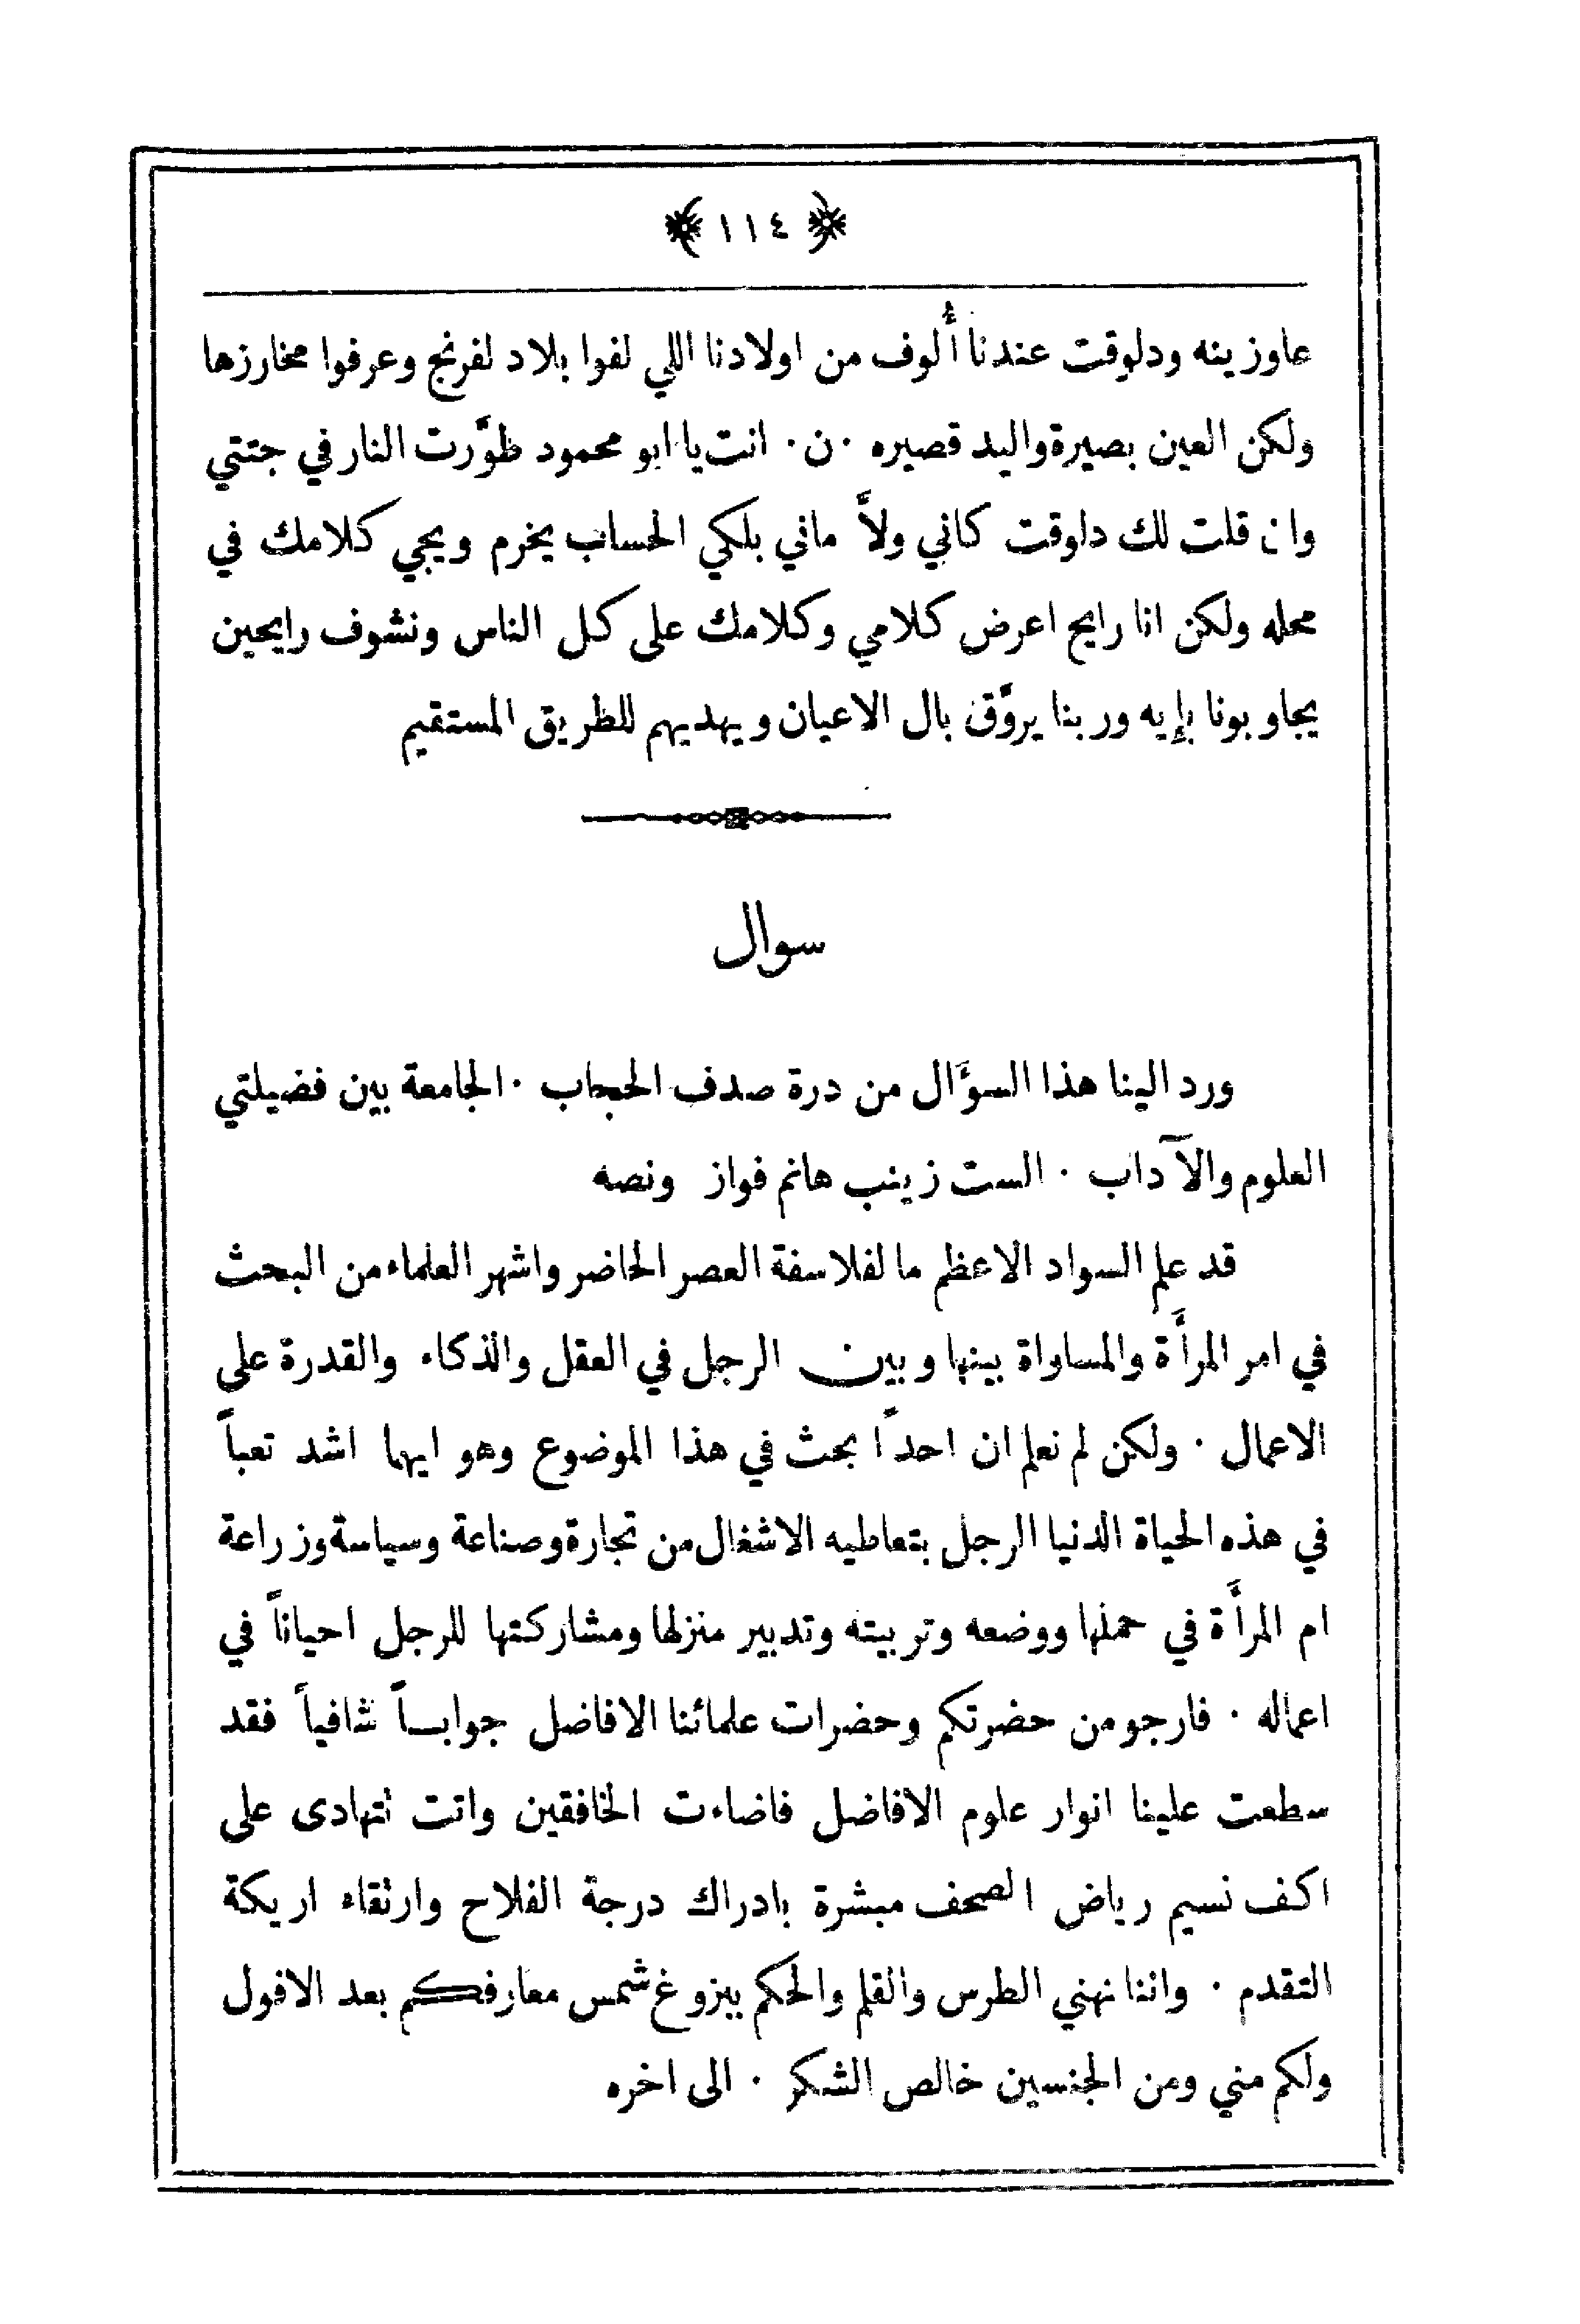 ﴿ ١١٤ ﴾
عاوزينه ودلوقت عندنا أُلوف من اولادنا اللي لفوا بلاد لفرنج وعرفوا مخارزها
ولكن العين بصيرة واليد قصيره . ن . انت يا ابو محمود ظوَّرت النار في جتتي
وان قلت لك داوقت كاني ولاَّ ماني بلكي الحساب يخرم ويجي كلامك في
محله ولكن انا رايح اعرض كلامي وكلامك على كل الناس ونشوف رايحين
يجاوبونا بإيه وربنا يروَّق بال الاعيان ويهديهم للظريق المستقيم
سوال
ورد الينا هذا السوَّال من درة صدف الحجاب . الجامعة بين فضيلتي
العلوم والآداب . الست زينب هانم فواز ونصه
قد علم السواد الاعظم ما لفلاسفة العصر الحاضر واشهر العلماء من البحث
في امر المرأَة والمساواة بينها وبين الرجل في العقل والذكاء والقدرة على
الاعمال . ولكن لم نعلم ان احداً بحث في هذا الموضوع وهو ايهما اشد تعباً
في هذه الحياة الدنيا الرجل بتعاطيه الاشغال من تجارة وصناعة وسياسة وزراعة
ام المرأَة في حملها ووضعه وتربيته وتدبير منزلها ومشاركتها للرجل احياناً في
اعماله . فارجو من حضرتكم وحضرات علمائنا الافاضل جواباً شافياً فقد
سطعت علينا انوار علوم الافاضل فاضاءت الخافقين واتت تتهادى على
اكف نسيم رياض الصحف مبشرة بادراك درجة الفلاح وارتقاء اريكة
التقدم . واننا نهني الطرس والقلم والحكم ببزوغ شمس معارفكم بعد الافول
ولكم مني ومن الجنسين خالص الشكر . الى اخره